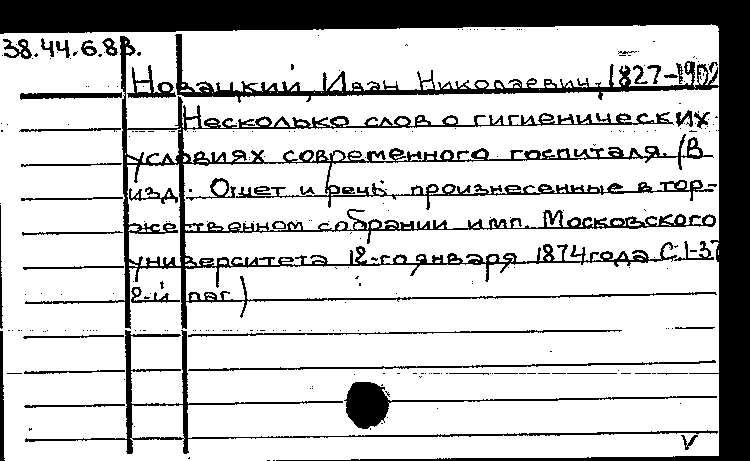 38.44.6.83.
Новацкий, Иван Николаевич, 1827-1902
Несколько слов о гигиенических
условиях современного госпиталя. (В
изд.: Отчет и речь, произнесенные в тор-
жественном собрании имп. Московского
университета 12-го января 1874 года С. 1-37
2-й паг.)
V